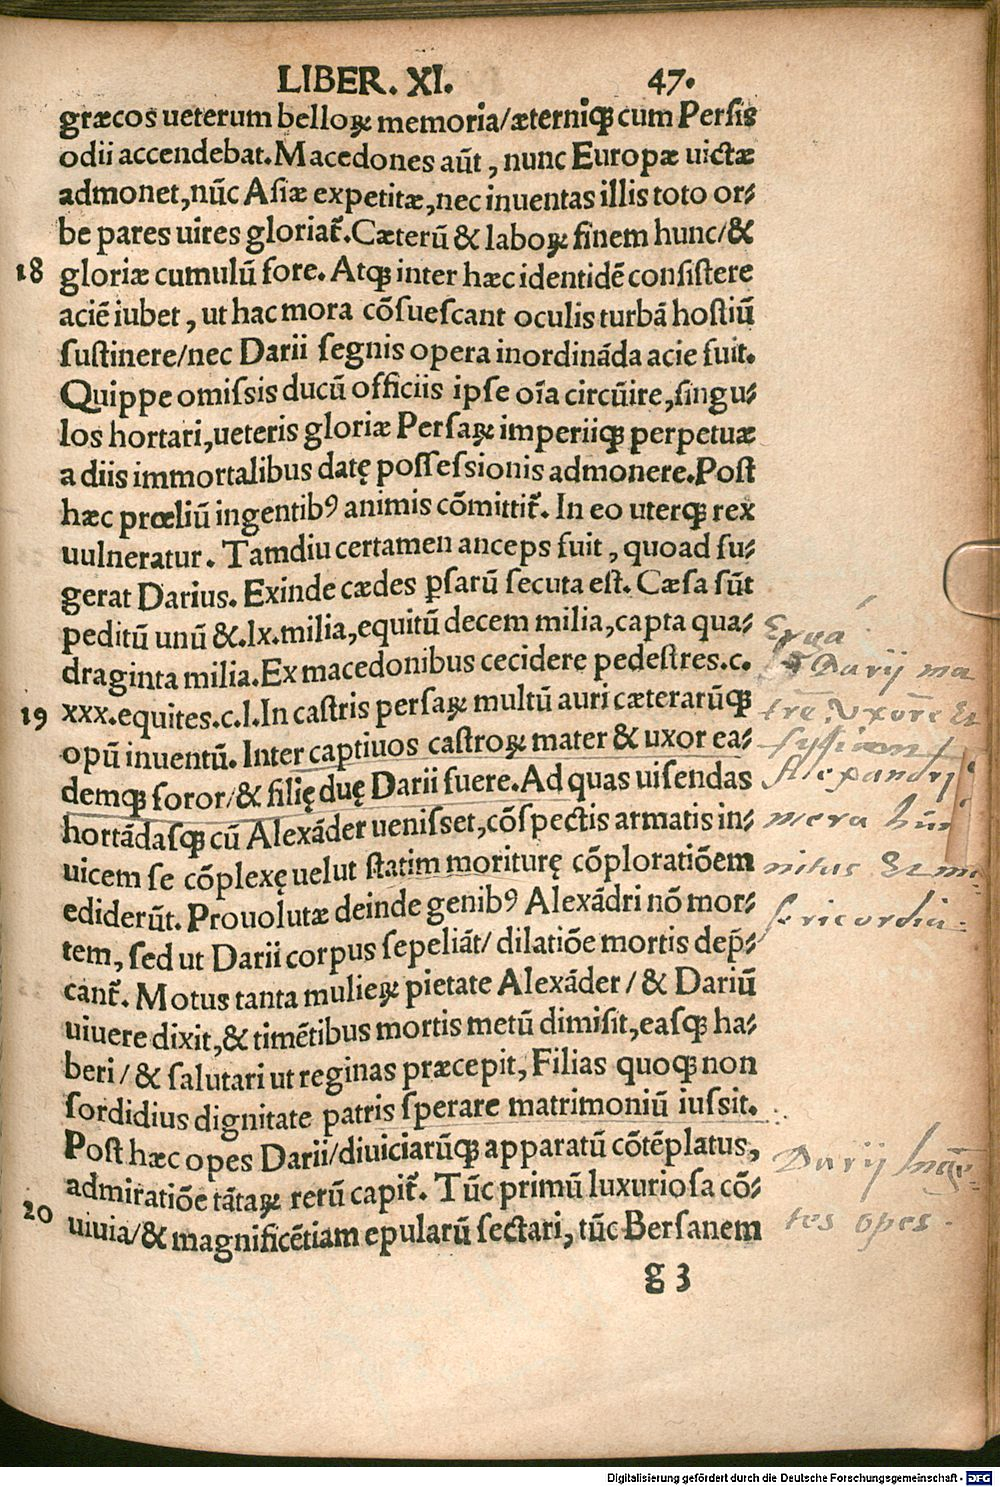 LIBER. XI. 47.
græcos ueterum belloꝝ memoria/æterniqꝫ cum Persis
odii accendebat. Macedones aũt, nunc Europæ uictæ
admonet, nũc Asiæ expetitæ, nec inuentas illis toto or⸗
be pares uires gloriat̃. Cæterũ & laboꝝ finem hunc/&
18 gloriæ cumulũ fore. Atqꝫ inter hæc identidẽ consistere
aciẽ iubet, ut hac mora cõsuescant oculis turbã hostiũ
sustinere/nec Darii segnis opera inordinãda acie fuit.
Quippe omissis ducũ officiis ipse oĩa circũire, singu⸗
los hortari, ueteris gloriæ Persaꝝ imperiiqꝫ perpetuæ
a diis immortalibus datę possessionis admonere. Post
hæc prœliũ ingentibꝰ animis cõmittit̃. In eo uterqꝫ rex
uulneratur. Tamdiu certamen anceps fuit, quoad fu⸗
gerat Darius. Exinde cædes ꝑsarũ secuta est. Cæsa sũt
peditũ unũ &.lx.milia, equitũ decem milia, capta qua⸗
draginta milia. Ex macedonibus cecidere pedestres.c.
19 xxx.equites.c.l.In castris persaꝝ multũ auri cæterarũqꝫ
opũ inuentũ. Inter captiuos castroꝝ mater & uxor ea⸗
demqꝫ soror/& filię duę Darii fuere. Ad quas uisendas
hortãdasqꝫ cũ Alexãder uenisset, cõspectis armatis in⸗
uicem se cõplexę uelut statim moriturę cõploratiõem
ediderũt. Prouolutæ deinde genibꝰ Alexãdri nõ mor⸗
tem, sed ut Darii corpus sepeliãt/ dilatiõe mortis dep̃⸗
cant̃. Motus tanta mulieꝝ pietate Alexãder/& Dariũ
uiuere dixit, & timẽtibus mortis metũ dimisit, easqꝫ ha⸗
beri/& salutari ut reginas præcepit, Filias quoqꝫ non
sordidius dignitate patris sperare matrimoniũ iussit.
Post hæc opes Darii/diuiciarũqꝫ apparatũ cõtẽplatus,
admiratiõe tãtaꝝ rerũ capit̃. Tũc primũ luxuriosa cõ⸗
20 uiuia/& magnificẽtiam epularũ sectari, tũc Bersanem
g 3
Erga
Darij ma
trẽ, Vxorẽ Et
Alexandrj
mera
nitas Et mi⸗
sericordia
Darij Ingẽ⸗
tes opes.
Digitalisierung gefördert durch die Deutsche Forschungsgemeinschaft - DFG